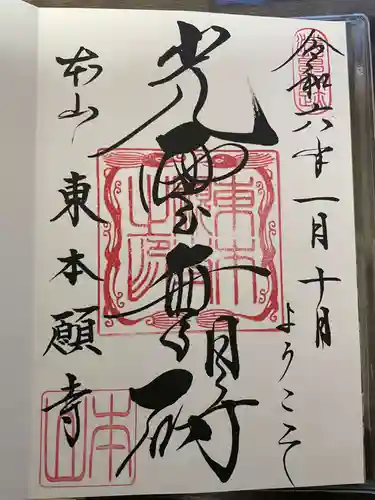 令和六年一月十日
ようこそ
光雲無碍
本山
東本願寺
本山